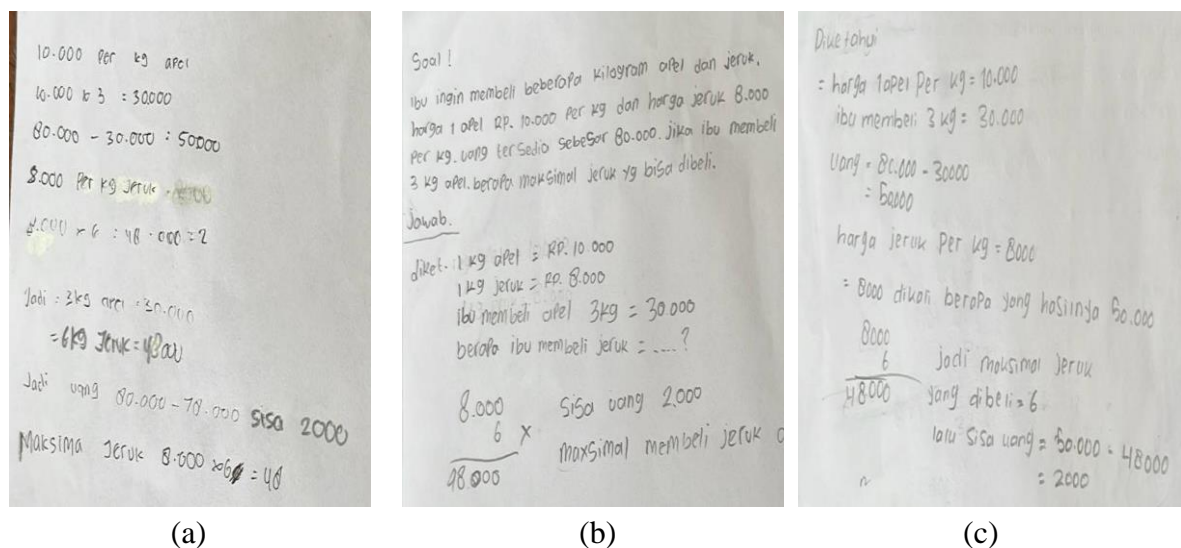 10.000 per kg apel
10.000 x 3 = 30.000
80.000 - 30.000 = 50.000
8.000 per kg jeruk =
8.000 x 6 = 48.000 = 2
Jadi = 3kg apel = 30.000
= 6kg Jeruk = 48000
Jadi uang 80.000 - 78.000 sisa 2000
Maksima Jeruk 8.000 x 6 = 48
(a)
Soal!
ibu ingin membeli beberapa kilogram apel dan jeruk,
harga 1 apel RP. 10.000 per kg dan harga jeruk 8.000
per kg. uang tersedio sebesar 80.000. jika ibu membeli
3 kg apel. berapa maksimal jeruk yg bisa dibeli.
Jawab.
diket. 1 kg apel = RP. 10.000
1 kg jeruk = RP. 8.000
ibu membeli apel 3kg = 30.000
berapa ibu membeli jeruk = ....?
8.000
6 x
48.000
sisa uang 2.000
maxsimal membeli jeruk
(b)
Diketahui
= harga 1 apel per kg = 10.000
ibu membeli 3 kg = 30.000
uang = 80.000 - 30000
= 50.000
harga jeruk per kg = 8000
= 8000 dikali berapa yang hasilnya 50.000
8000
6
48000
jadi maksimal jeruk
yang dibeli = 6
lalu sisa uang = 50.000 - 48000
= 2000
(c)